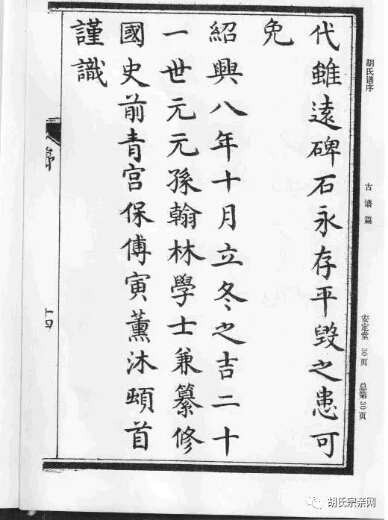 代雖遠碑石永存平毀之患可
免
紹興八年十月立冬之吉二十
一世元元孫翰林學士兼纂修
國史前青宮保傅寅薰沐頓首
謹識
十四
胡氏譜序
古谱篇
安定堂 30页 总第30页
胡氏宗亲网